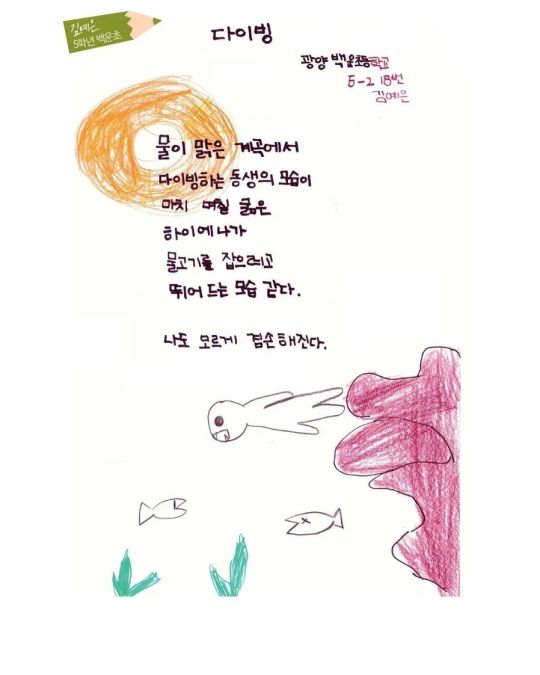 김예은
5학년 백운초
다이빙
광양 백운초등학교
5-2 18번
김예은
물이 맑은 계곡에서
다이빙하는 동생의 모습이
마치 며칠 굶은
하이에나가
물고기를 잡으려고
뛰어 드는 모습 같다.
나도 모르게 겸손해진다.